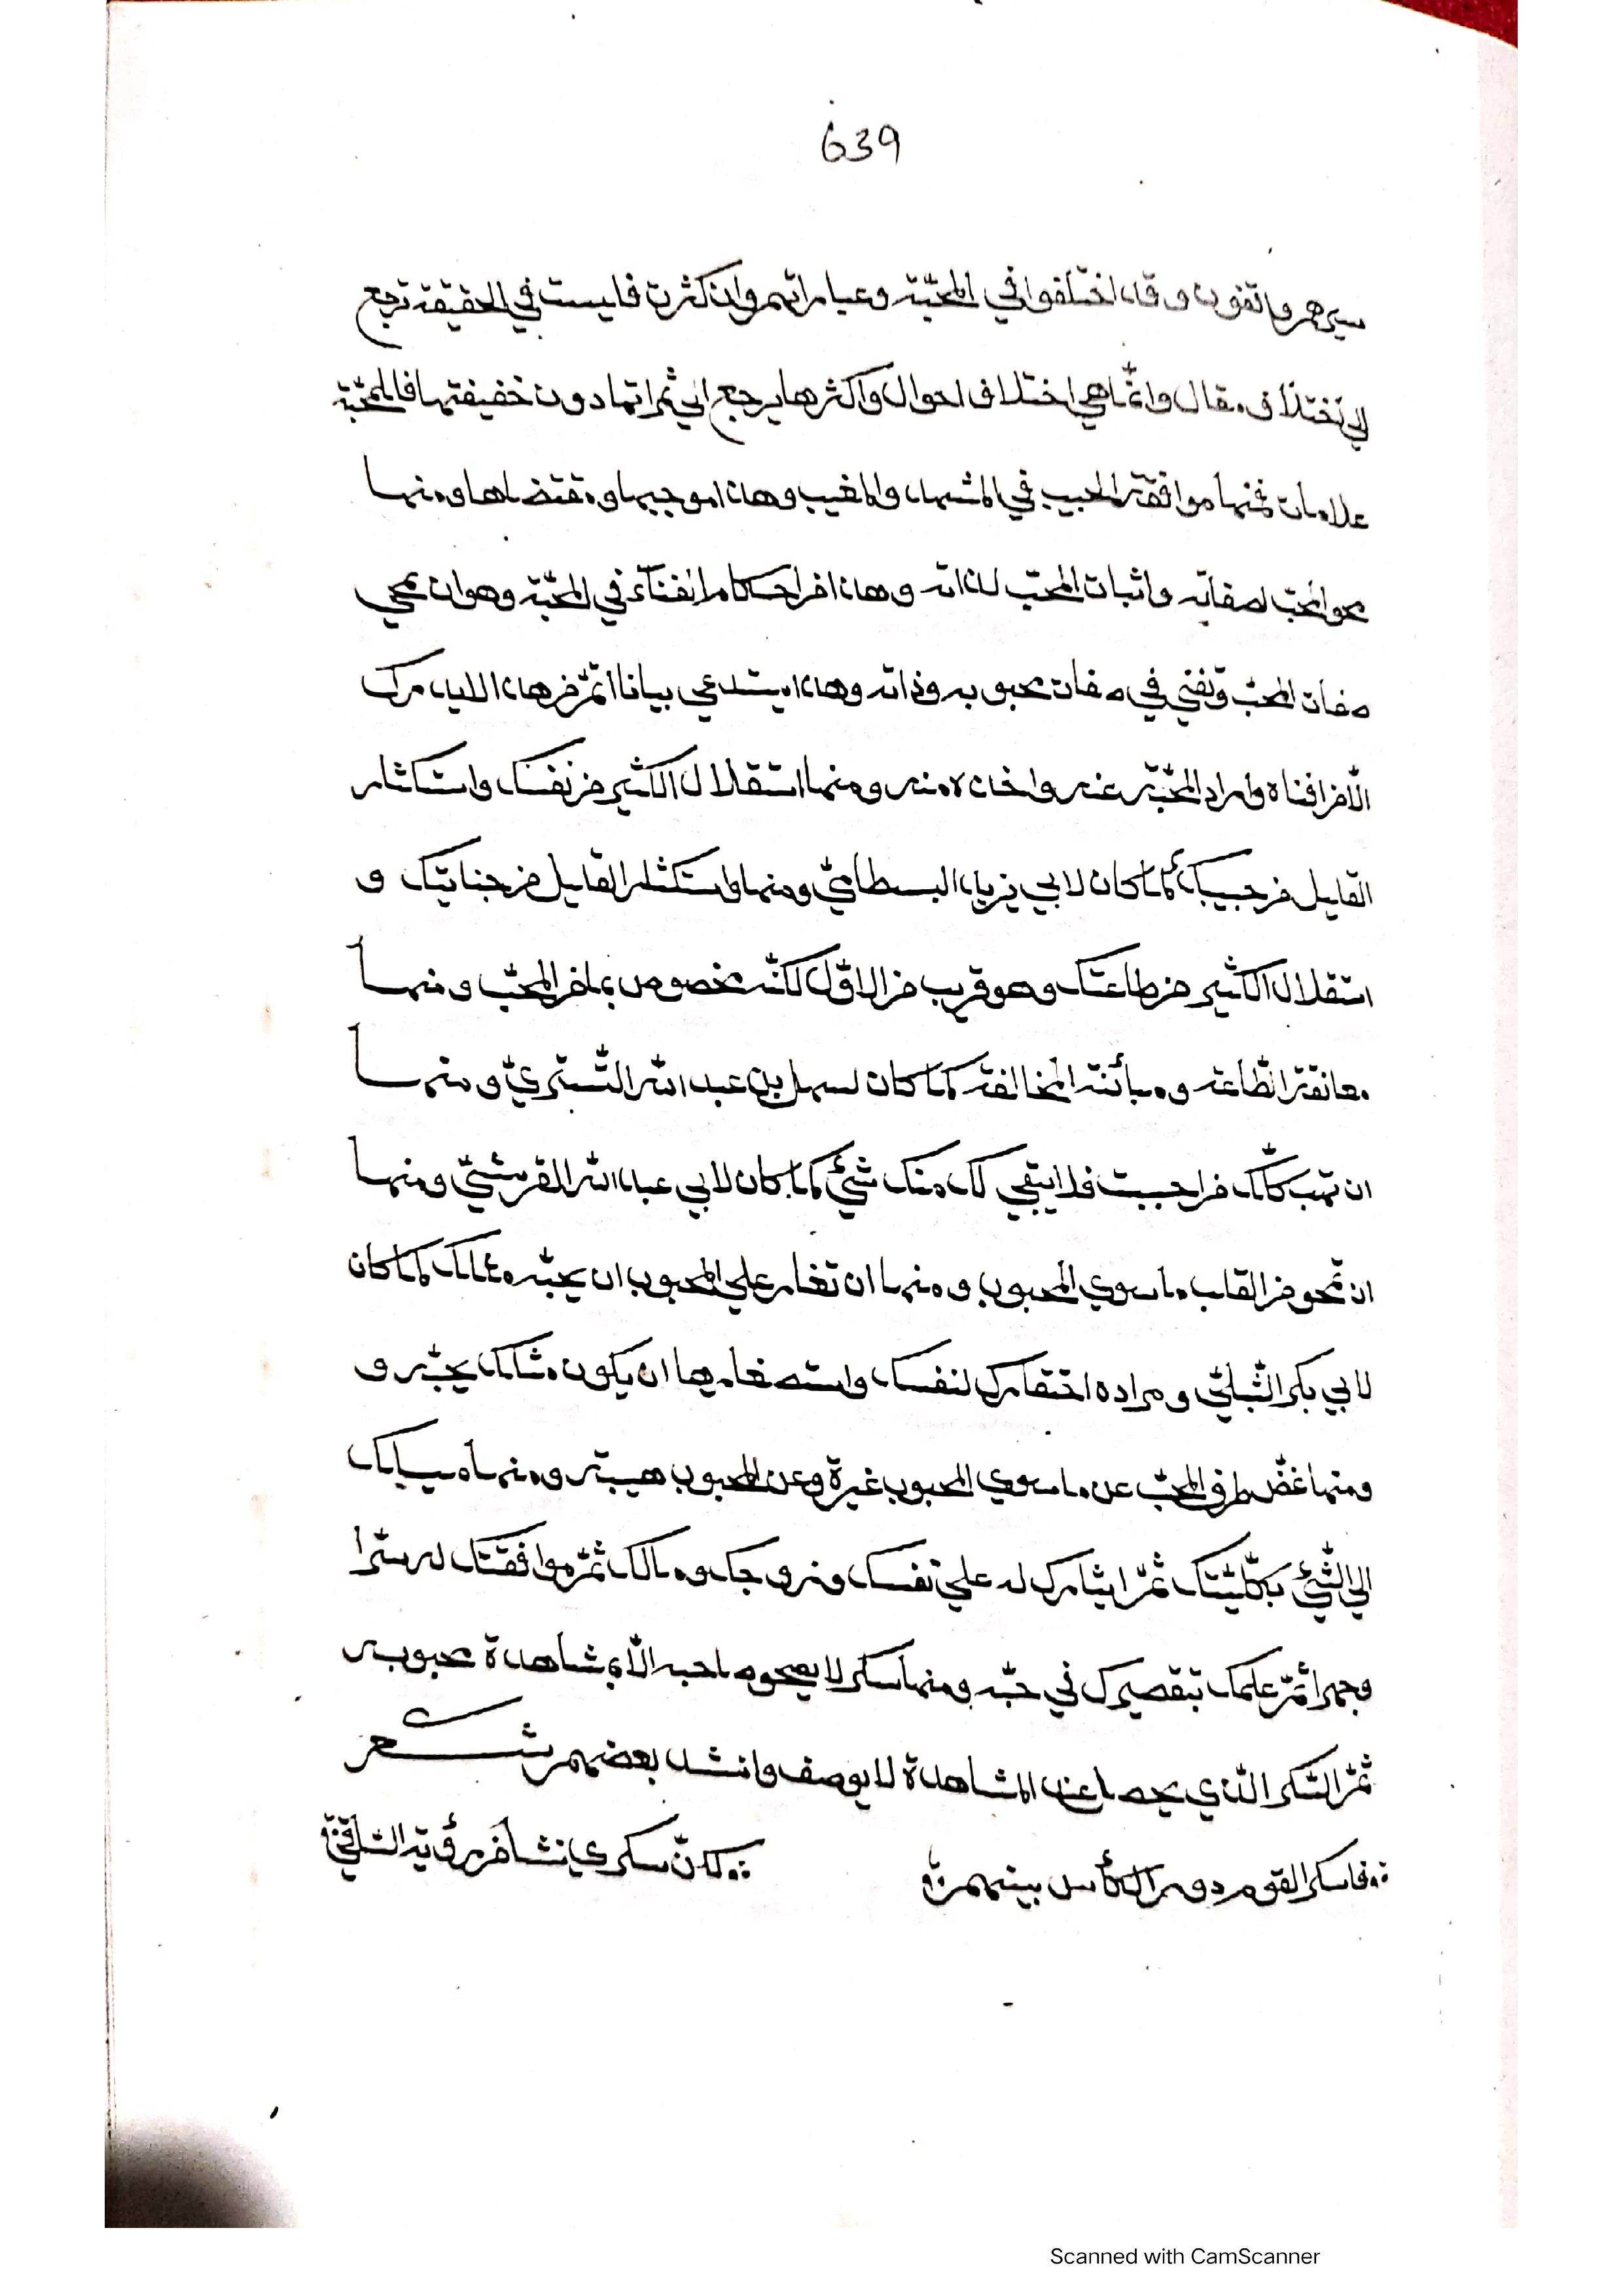 639
سيرهم واقفون وقد اختلفوا في المحبّة وعباراتهم وان كثرت فليست في الحقيقة ترجع
الي تختلاف مقال وانّما هي اختلاف احوال واكثرها يرجع الي ثمراتها دون حقيقتها فالمحبّة
علامات فمنها موافقة الحبيب في المشهد والمغيب وهذا موجبها ومقتضاها ومنها
محو المحبّ لصفاته واثبات المحبّ لذاته وهذا من احكام الفنآء في المحبّة وهو ان يمحي
صفات المحبّ وتفني في صفات محبوبه وذاته وهذا يستدعي بيانا اتمّ من هذا لا يدرك
الّا من افناه وارد المحبّة عنه واخذه منه ومنها استقلال الكثير من نفسك واستكثار
القليل من حبيبك كما كان لابي يزيد البسطاميّ ومنها استكثار القليل من جنايتك و
استقلال الكثير من طاعتك وهو قريب من الاوّل لكنّه مخصوص بما من المحبّ ومنها
معانقة الطّاعة ومبائنة المخالفة كما كان لسهل بن عبد اللّه التّستريّ ومنها
ان تهب كلّك من احببت فلا يبقي لك منك شئ كما كان لابي عبد اللّه القرشيّ ومنها
ان تمحو من القلب ما سوي المحبوب ومنها ان تغار علي المحبوب ان يحبّه مثلك كما كان
لابي بكر الشّبليّ ومراده احتقارك لنفسك واستصغارها ان يكون مثلك يحبّه و
ومنها غضّ طرف المحبّ عن ما سوي المحبوب غيرة وعن المحبوب هيبة ومنها ميلك
الي الشّئ بكلّيّتك ثمّ ايثارك له علي نفسك وزوجك ومالك ثمّ موافقتك له سرّا
وجهرا ثمّ علمك بتقصيرك في حبّه ومنها سكر لا يصحو صاحبه الّا بمشاهدة محبوبه
ثمّ السّكر الّذي يحصل عند المشاهدة لا يوصف وانشد بعضهم شعر
فاسكر القوم دور الكأس بينهم
لكنّ سكري نشأ من رؤية السّاقي
Scanned with CamScanner